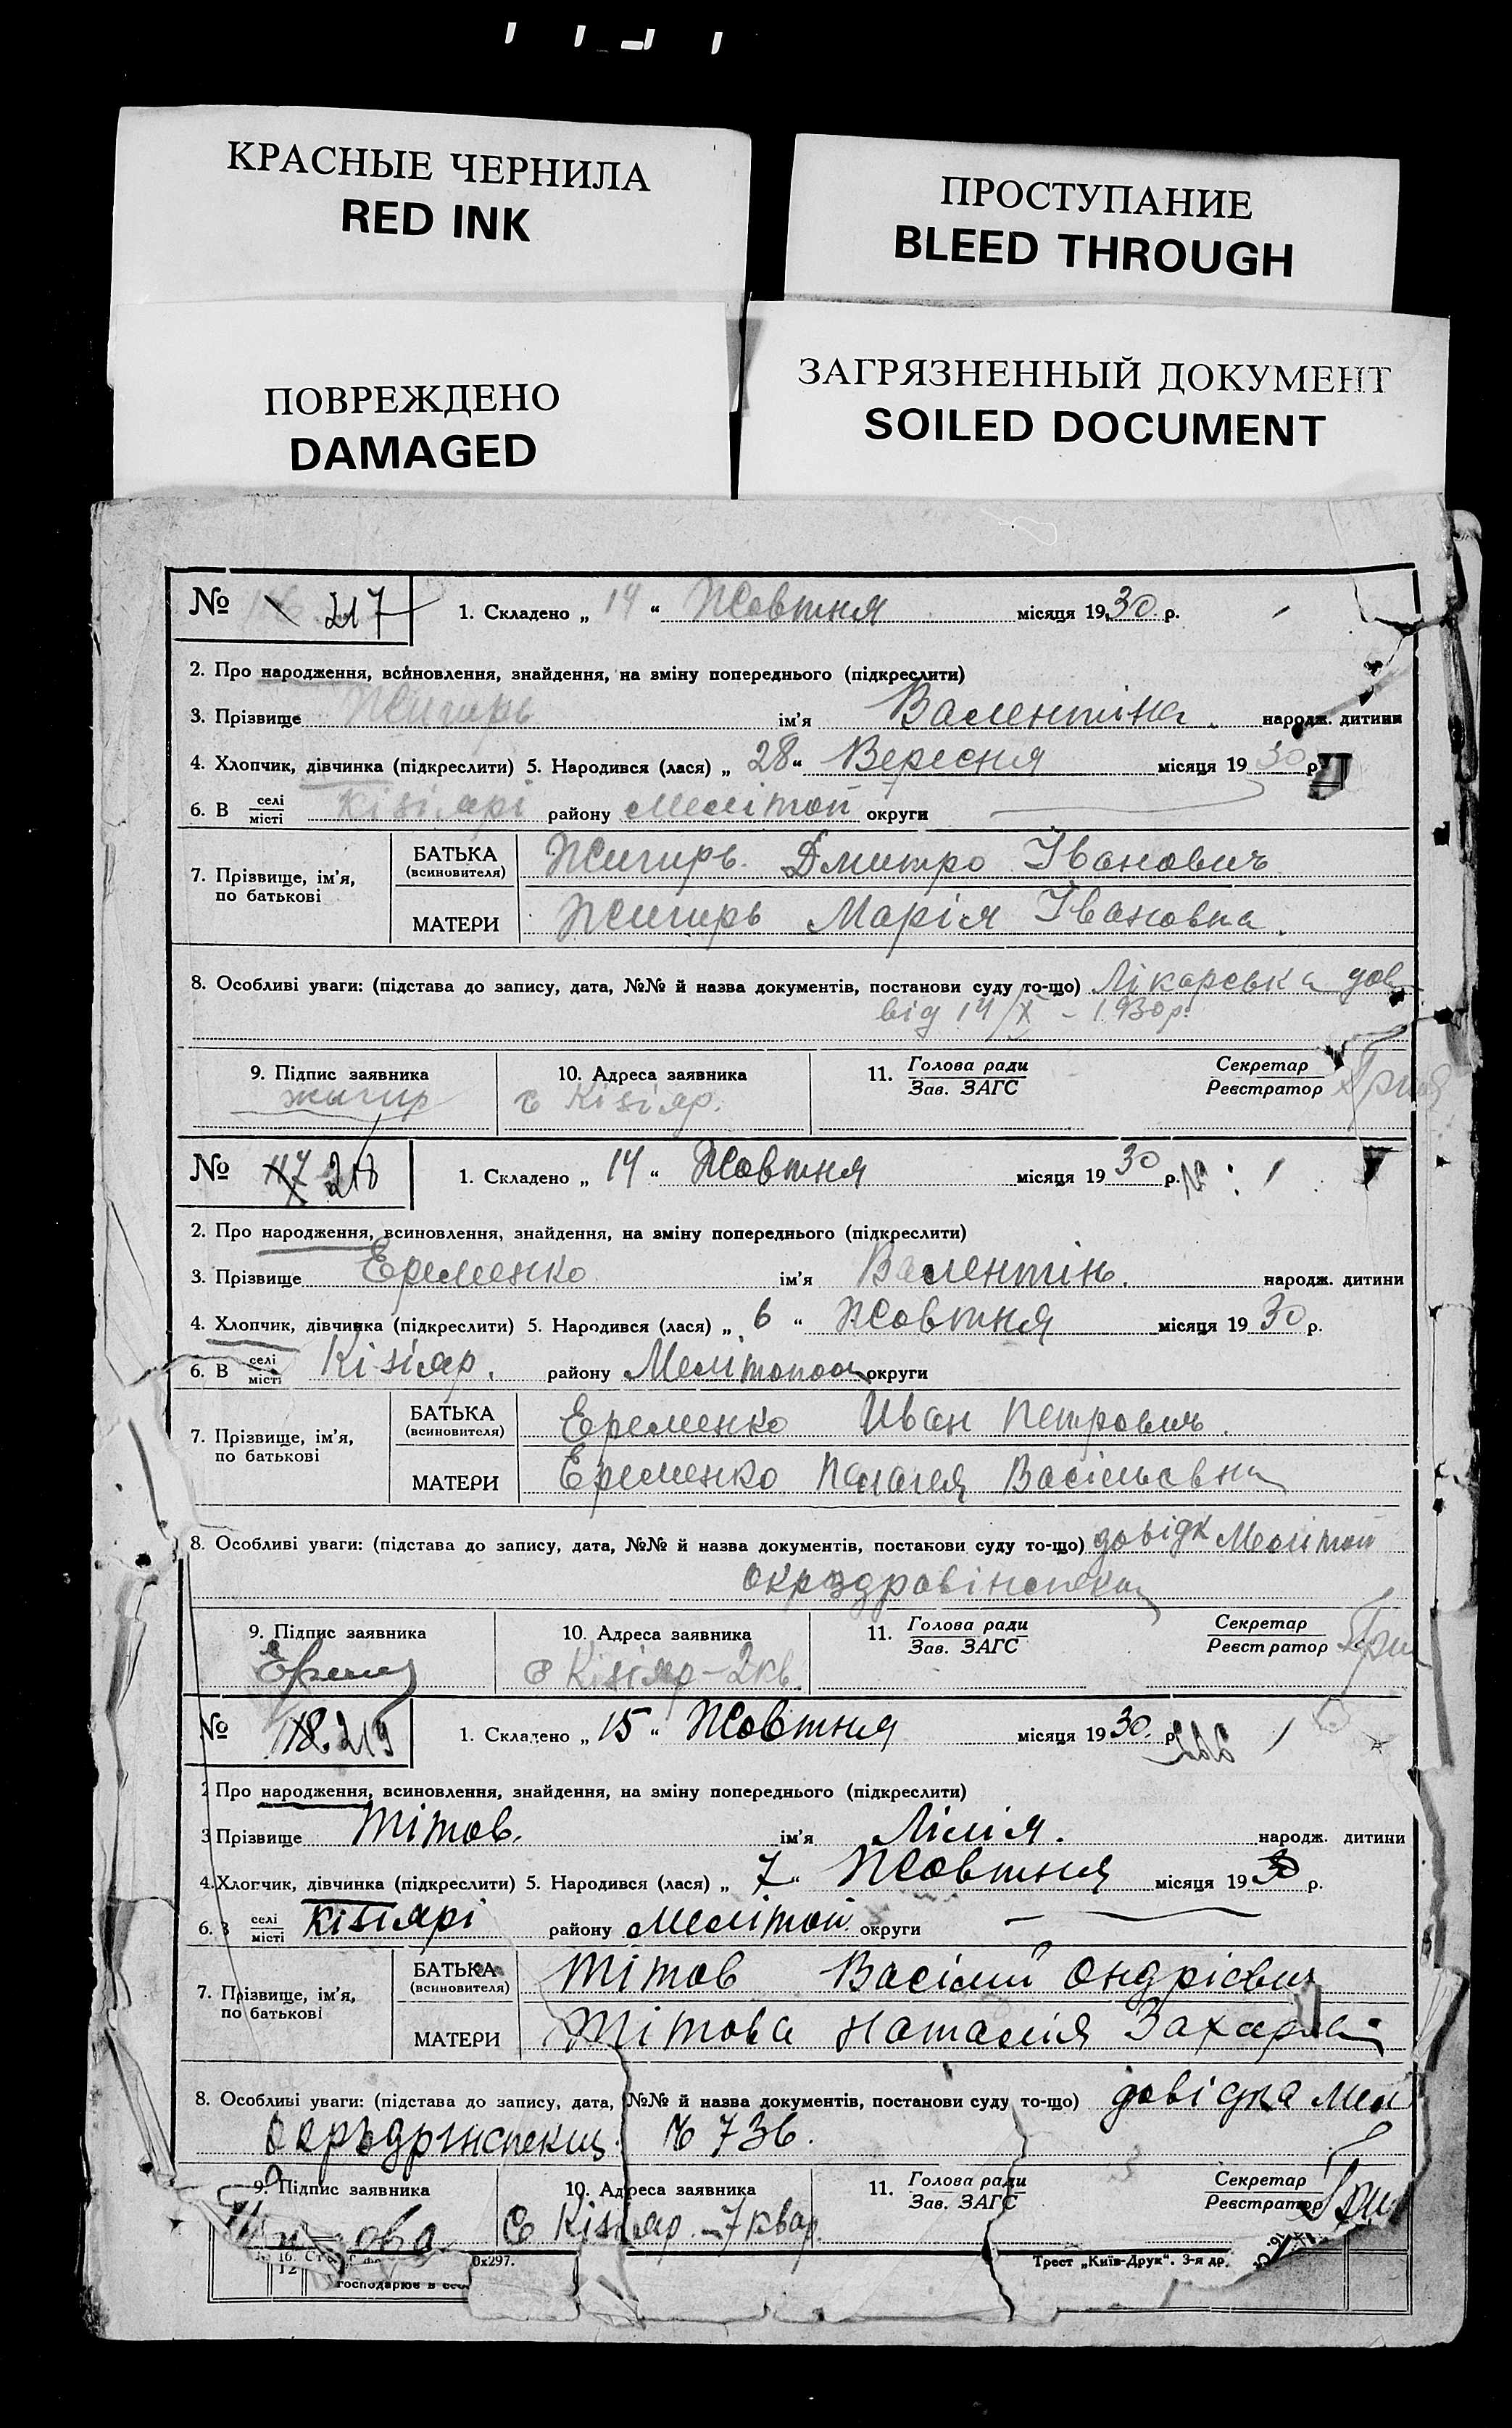 КРАСНЫЕ ЧЕРНИЛА
RED INK
ПРОСТУПАНИЕ
BLEED THROUGH
ПОВРЕЖДЕНО
DAMAGED
ЗАГРЯЗНЕННЫЙ ДОКУМЕНТ
SOILED DOCUMENT
№ 217 1. Складено „ 14 “ Жовтня місяця 1930 р.
2. Про народження, всиновлення, знайдення, на зміну попереднього (підкреслити)
3. Прізвище Жигирь ім’я Валентіна народж. дитини
4. Хлопчик, дівчинка (підкреслити) 5. Народився (лася) „ 28 “ Вересня місяця 1930 р.
6. В селі місті Кізіярі району Мелітоп округи
7. Прізвище, ім’я, по батькові
БАТЬКА (всиновителя) Жигирь Дмитро Іванович
МАТЕРИ Жигирь Марія Івановна.
8. Особливі уваги: (підстава до запису, дата, №№ й назва документів, постанови суду то-що) Лікарська дов
від 14/X – 1930р.
9. Підпис заявника 10. Адреса заявника 11. Голова ради Секретар
Зав. ЗАГС Реєстратор
жигир с Кізіяр.
№ 117 218 1. Складено „ 14 “ Жовтня місяця 1930 р.
2. Про народження, всиновлення, знайдення, на зміну попереднього (підкреслити)
3. Прізвище Еременко ім’я Валентін. народж. дитини
4. Хлопчик, дівчинка (підкреслити) 5. Народився (лася) „ 6 “ Жовтня місяця 1930 р.
6. В селі місті Кізіяр. району Мелітопол округи
7. Прізвище, ім’я, по батькові
БАТЬКА (всиновителя) Еременко Иван Петрович.
МАТЕРИ Еременко Пелагея Васільевна
8. Особливі уваги: (підстава до запису, дата, №№ й назва документів, постанови суду то-що) довідк Мелітоп
Окрздравінспекц
9. Підпис заявника 10. Адреса заявника 11. Голова ради Секретар
Зав. ЗАГС Реєстратор
с Кізіяр – 2 кв.
№ 118. 219 1. Складено „ 15 “ Жовтня місяця 1930. р.
2 Про народження, всиновлення, знайдення, на зміну попереднього (підкреслити)
3 Прізвище Тітов. ім’я Лілія. народж. дитини
4. Хлопчик, дівчинка (підкреслити) 5. Народився (лася) „ 7 “ Жовтня місяця 1930 р.
6. В селі місті Кізіярі району Мелітоп. округи
7. Прізвище, ім’я, по батькові
БАТЬКА (всиновителя) Тітов Васілий Ондрієвич
МАТЕРИ Тітова Наталія
8. Особливі уваги: (підстава до запису, дата, №№ й назва документів, постанови суду то-що) довідка Мел
№ 736.
9. Підпис заявника 10. Адреса заявника 11. Голова ради Секретар
Зав. ЗАГС Реєстратор
с Кізіяр – 7 квар.
Трест „Київ-Друк“. 3-я др.